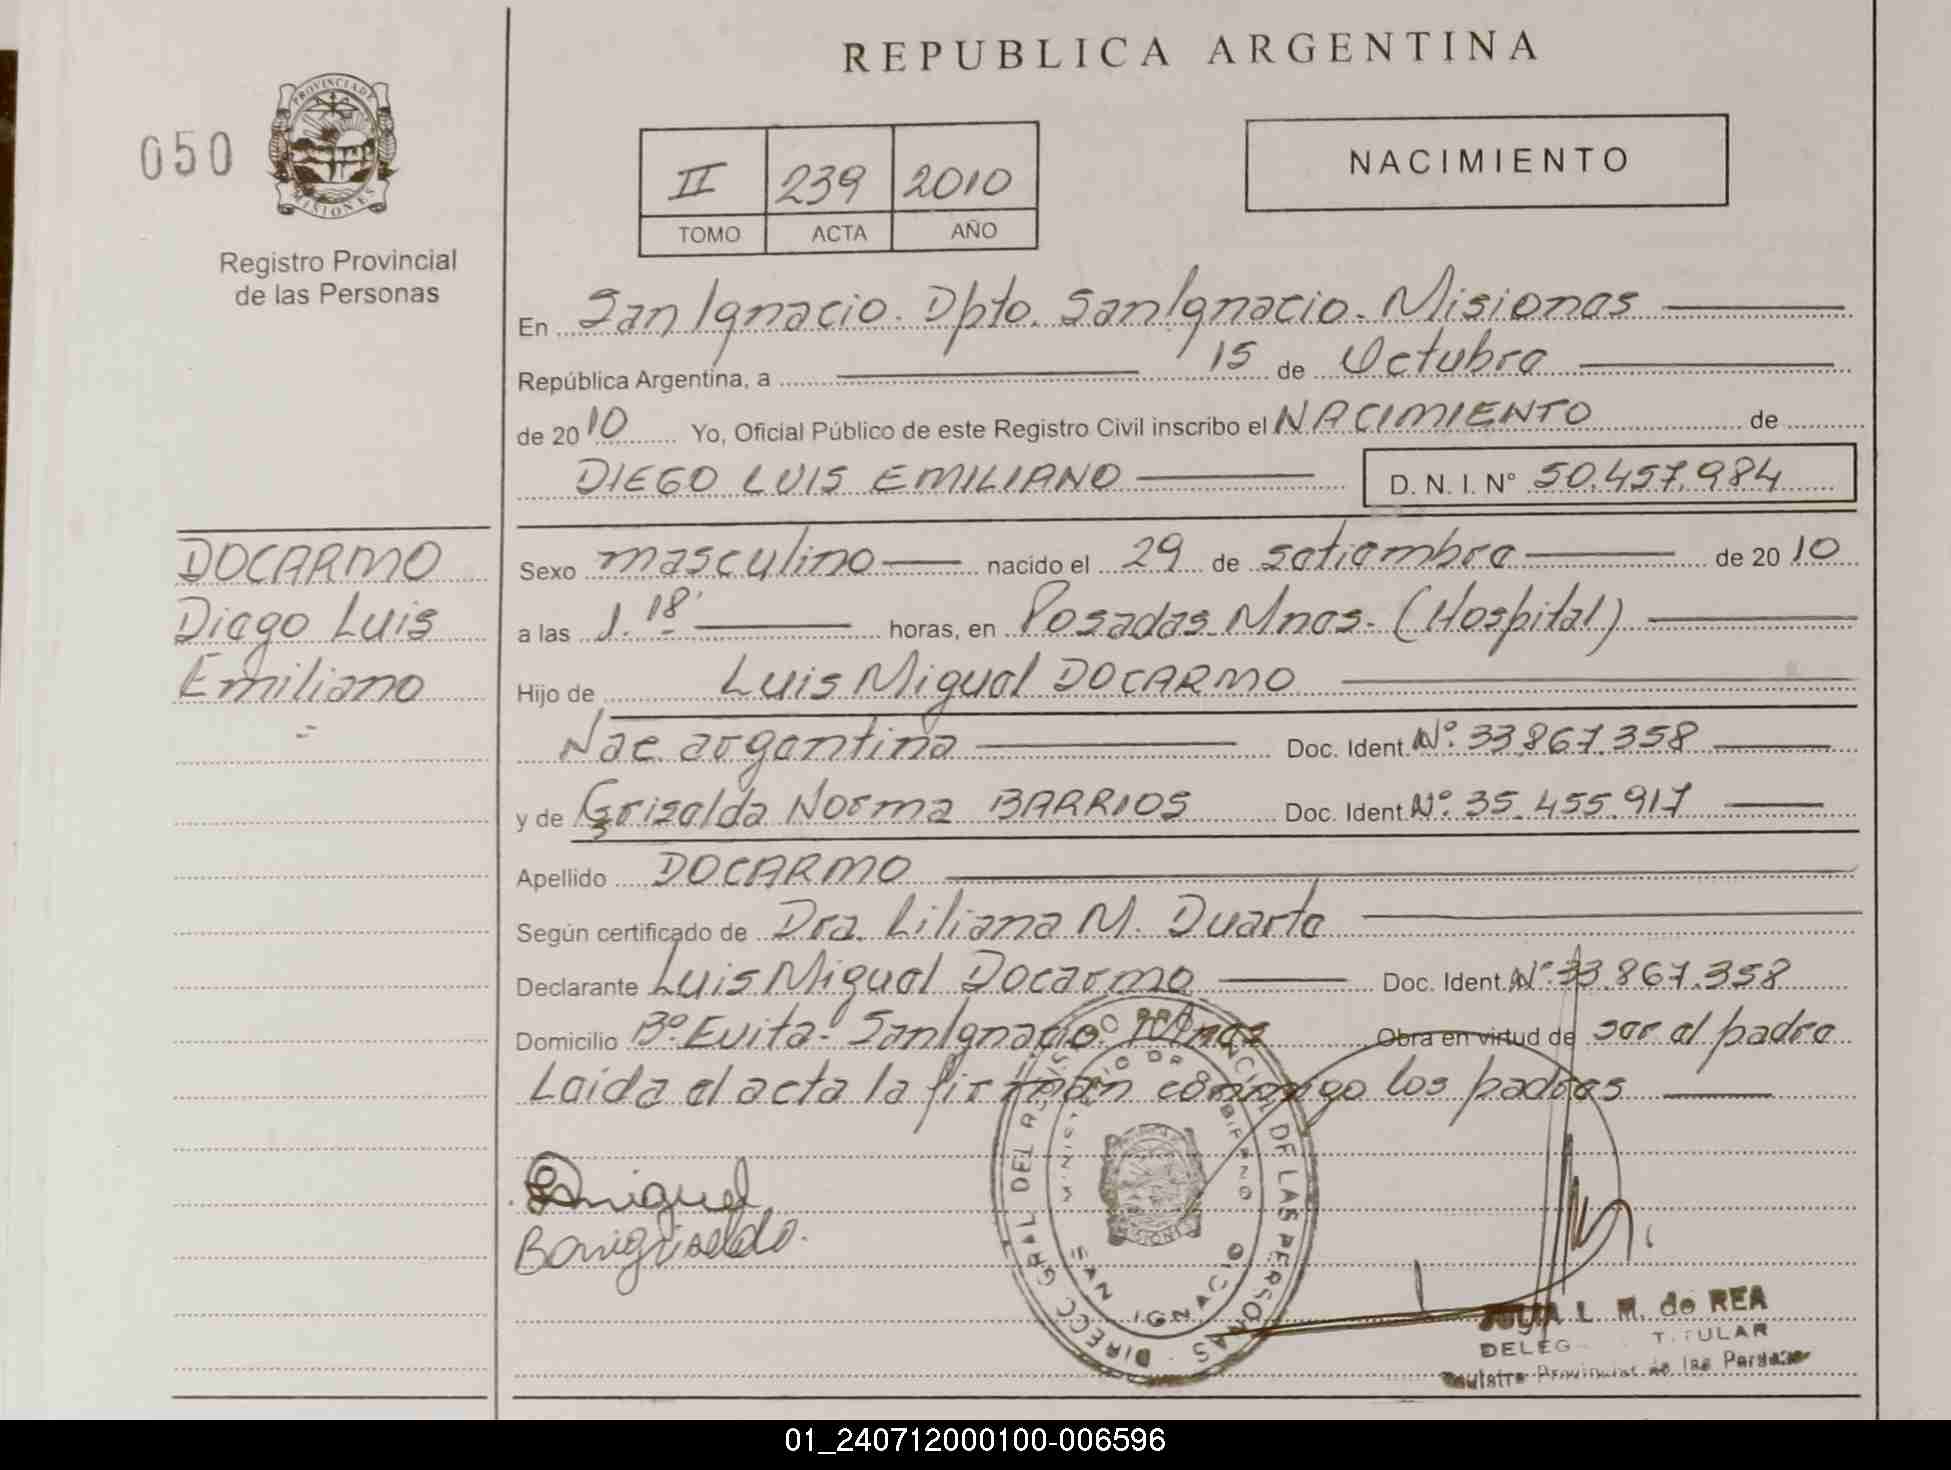 REPUBLICA ARGENTINA
050
PROVINCIA DE
MISIONES
Registro Provincial
de las Personas
II 239 2010
TOMO ACTA AÑO
NACIMIENTO
En San Ignacio. Dpto. San Ignacio. Misiones
República Argentina, a 15 de Octubre
de 2010 Yo, Oficial Público de este Registro Civil inscribo el NACIMIENTO de
DIEGO LUIS EMILIANO D. N. I. N° 50.457.984
DOCARMO
Diego Luis
Emiliano
Sexo masculino nacido el 29 de setiembre de 2010
a las 1.18' horas, en Posadas Mnes. (Hospital)
Hijo de Luis Miguel DOCARMO
Nac. argentina Doc. Ident. N°. 33.867.358
y de Griselda Norma BARRIOS Doc. Ident. N°. 35.455.917
Apellido DOCARMO
Según certificado de Dra. Liliana M. Duarte
Declarante Luis Miguel Docarmo Doc. Ident. N°. 33.867.358
Domicilio B° Evita - San Ignacio Mnes Obra en virtud de ser el padre
Leida el acta la firman conmigo los padres
DIRECC GRAL DEL REGISTRO PROVINCIAL DE LAS PERSONAS
MINISTERIO DE GOBIERNO
SAN IGNACIO
JULIA L. M. de REA
TITULAR
Registro Provincial de las Personas
01_240712000100-006596